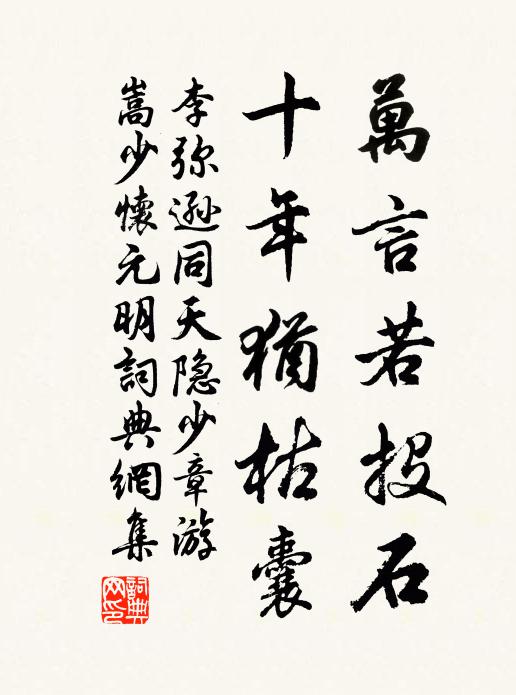 萬言若投石
十年猶枯囊
李弥遜同天隐少章游
嵩少懷元明詞典網集
詞典
网印